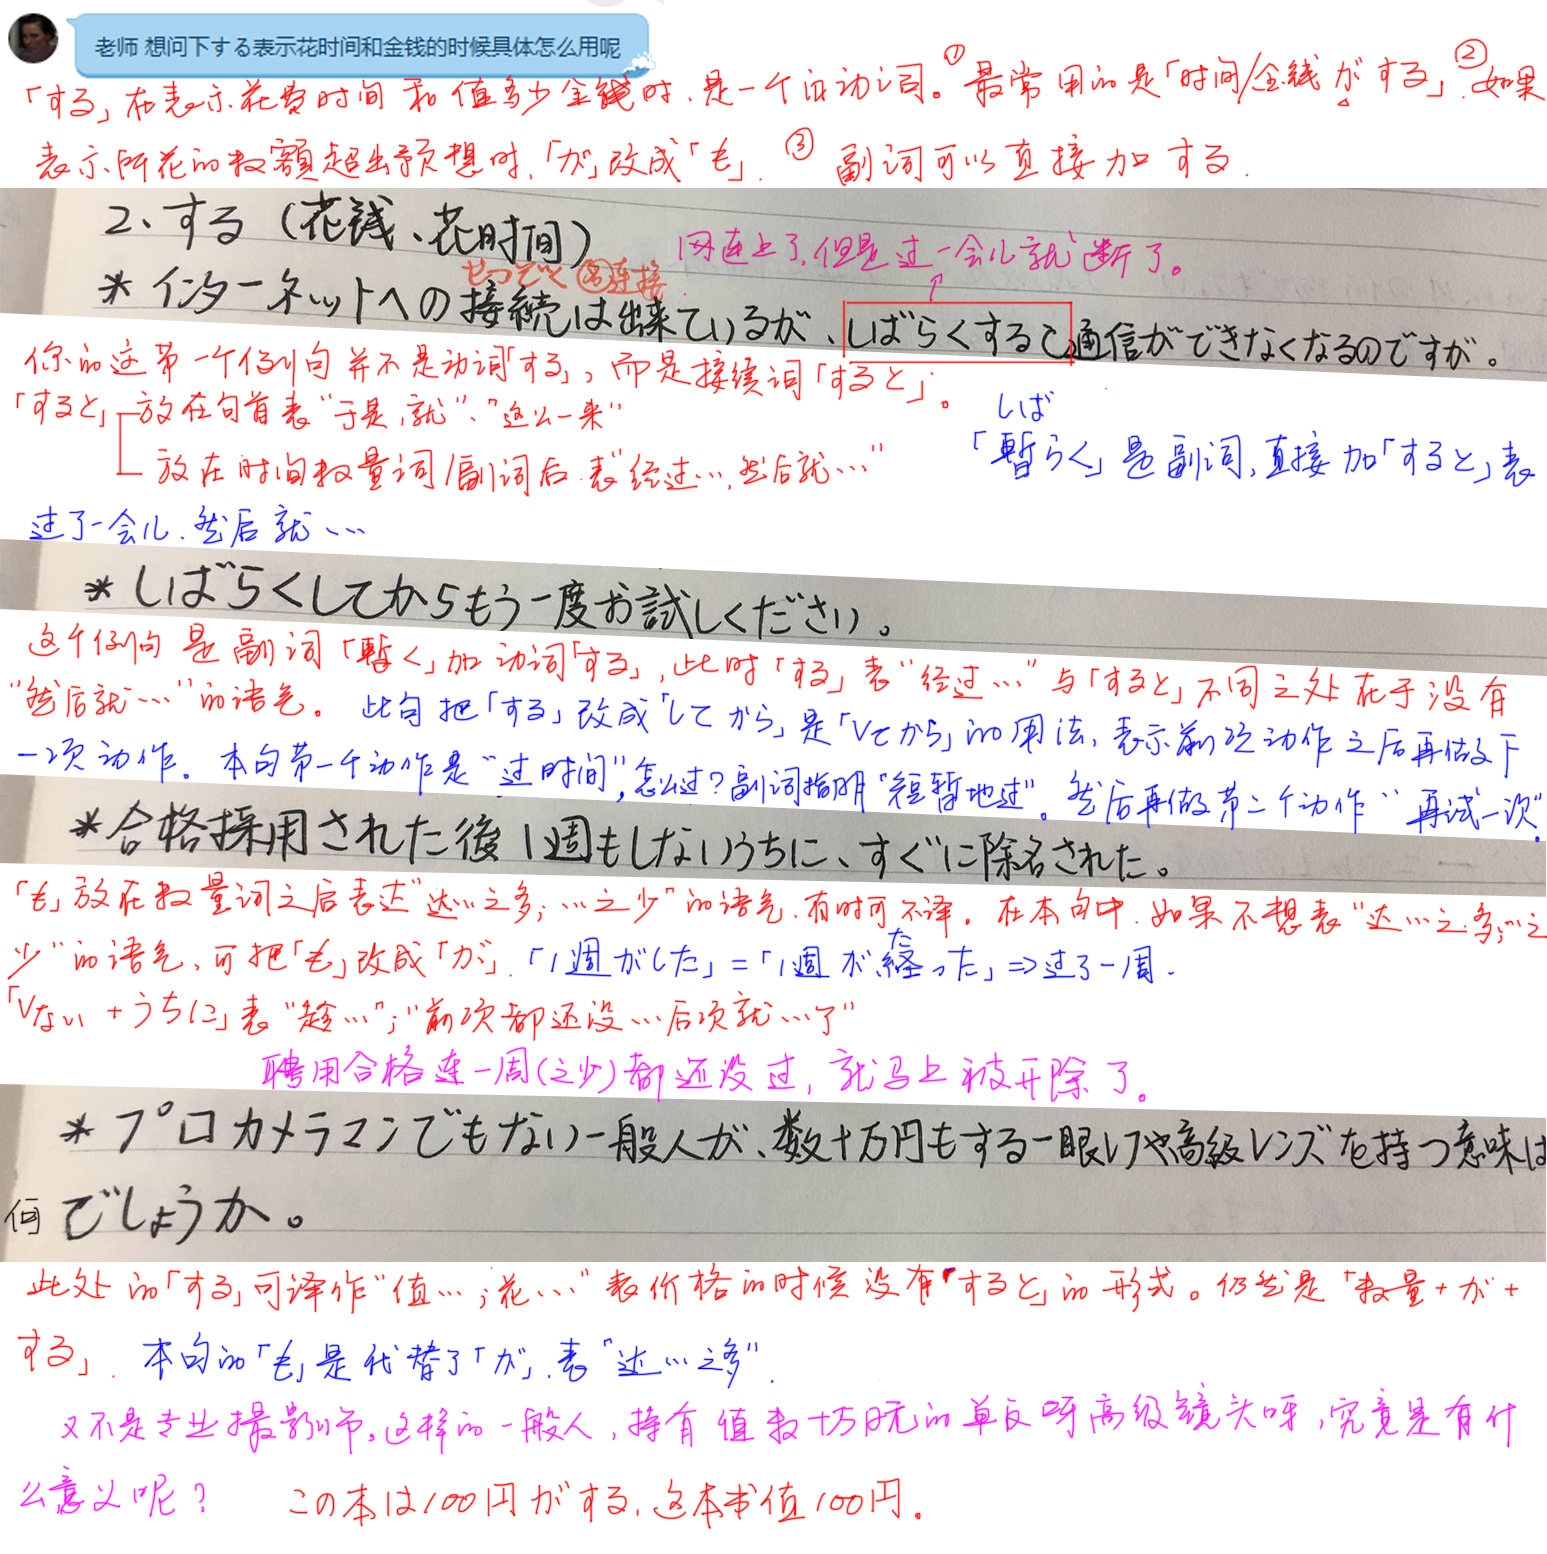 老师 想问下する表示花时间和金钱的时候具体怎么用呢
「する」在表示花费时间和值多少金钱时、是一个自动词。①最常用的是「时间/金钱がする」②.如果
表示所花的数额超出预想时、「が」改成「も」. ③ 副词可以直接加する.
2、する（花钱、花时间）
网连上了,但是过一会儿就断了。
せつぞく ⓪连接
* インターネットへの接続は出来ているが、しばらくすると通信ができなくなるのですが。
你的这第一个例句并不是动词「する」, 而是接续词「すると」。
「すると」放在句首表“于是,就”、“这么一来”
放在时间数量词/副词后.表“经过…,然后就…”
しば
「暫らく」是副词,直接加「すると」表
过了一会儿.然后就…
* しばらくしてからもう一度お試しください。
这个例句是副词「暫く」加动词「する」,此时「する」表“经过…”与「すると」不同之处在于没有
“然后就…”的语气。 此句把「する」改成「してから」是「Vてから」的用法、表示前项动作之后再做下
一项动作。本句第一个动作是“过时间”,怎么过?副词指明“短暂地过”。然后再做第二个动作“再试一次”.
* 合格採用された後1週もしないうちに、すぐに除名された。
「も」放在数量词之后表达“达…之多；…之少”的语气.有时可不译。在本句中.如果不想表“达…之多；…之
少”的语气、可把「も」改成「が」.「1週がした」=「1週が経った」⇒过了一周.
た
「Vない+うちに」表“趁…”；“前项都还没…后项就…了”
聘用合格连一周(之少)都还没过, 就马上被开除了。
* プロカメラマンでもない一般人が、数十万円もする一眼レフや高級レンズを持つ意味は
何でしょうか。
此处的「する」可译作“值…；花…”表价格的时候没有「すると」的形式。仍然是「数量+が+
する」. 本句的「も」是代替了「が」.表“达…之多”.
又不是专业摄影师。这样的一般人, 持有值数十万日元的单反呀高级镜头呀,究竟是有什
么意义呢? この本は100円がする.这本书值100円。